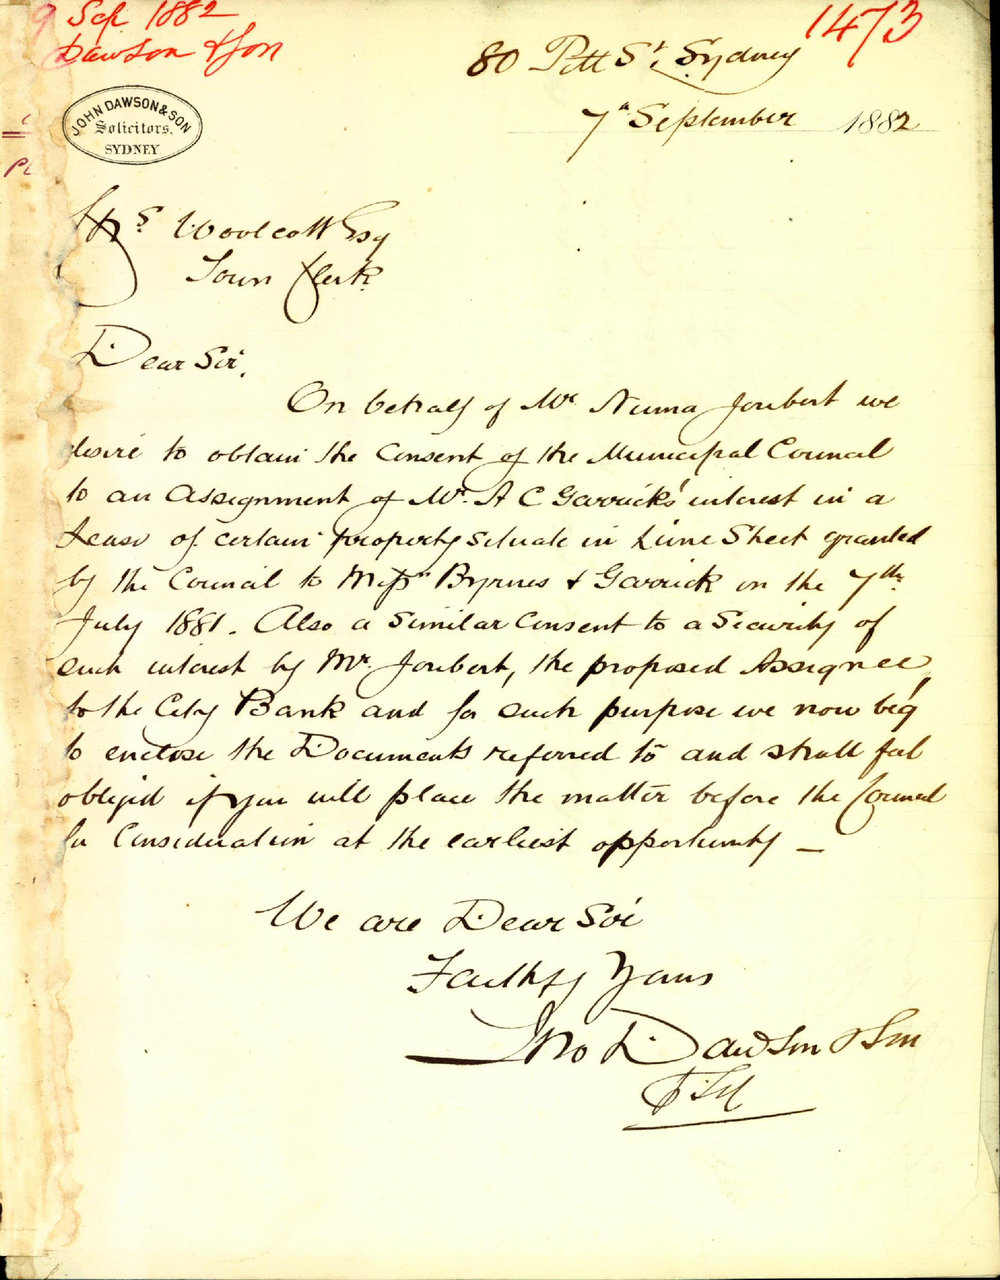 9 Sep 1882
Dawson & Son
1473
80 Pitt St. Sydney
7th September 1882
JOHN DAWSON & SON
Solicitors.
SYDNEY
Woolcott Esq
Town Clerk
Dear Sir,
On behalf of Mr Numa Joubert we
desire to obtain the Consent of the Municipal Council
to an Assignment of Mr. A C Garrick's interest in a
Lease of certain property situate in Lime Street granted
by the Council to Messrs Byrnes & Garrick on the 7th
July 1881. Also a Similar Consent to a Security of
such interest by Mr. Joubert, the proposed Assignee,
to the City Bank and for such purpose we now beg
to enclose the Documents referred to and shall feel
obliged if you will place the matter before the Council
for Consideration at the earliest opportunity —
We are Dear Sir
Faithfy Yours
Jno Dawson & Son